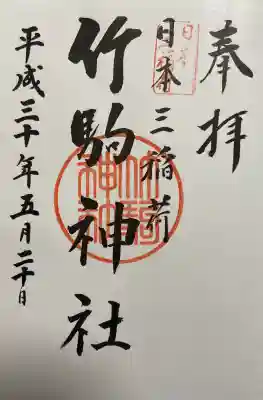 奉拝
日本三稲荷
竹駒神社
平成三十年五月二十日